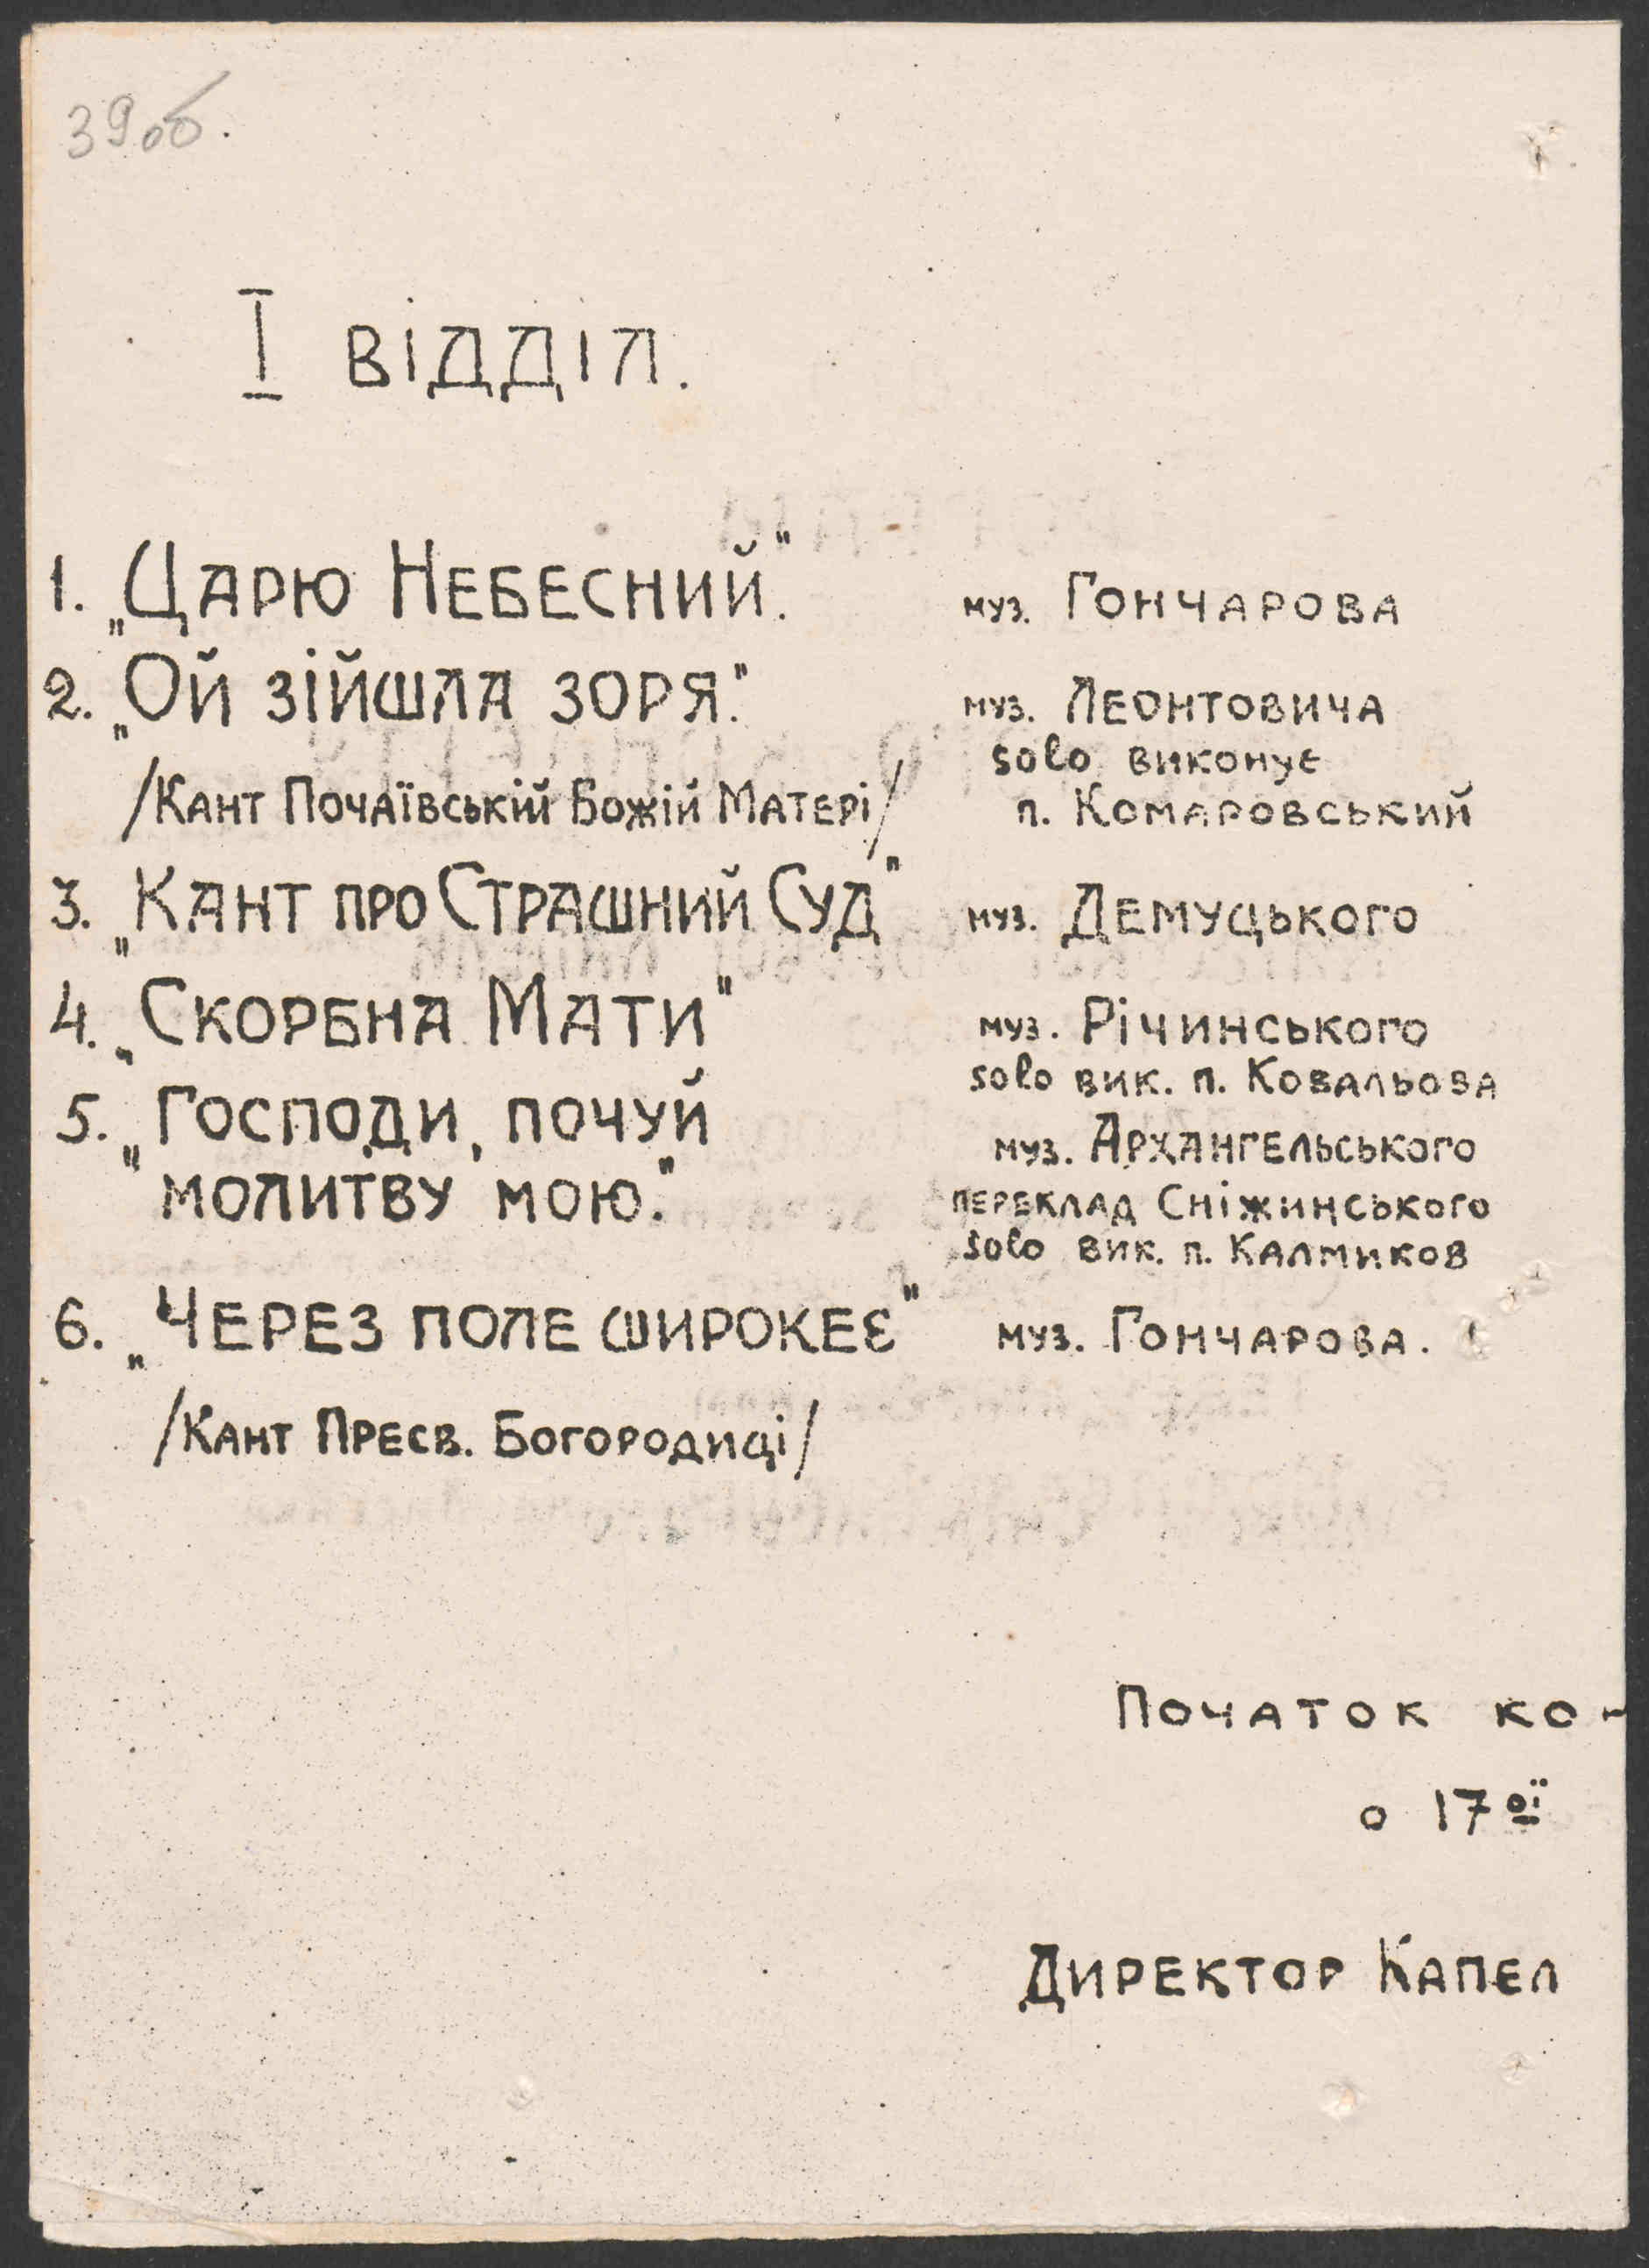 39об.
I відділ.
1. „Царю Небесний."
муз. Гончарова
2. „Ой зійшла зоря."
муз. Леонтовича
solo виконує
/Кант Почаївській Божій Матері/
п. Комаровський
3. „Кант про Страшний Суд"
муз. Демуцького
4. „Скорбна Мати"
муз. Річинського
solo вик. п. Ковальова
5. „Господи, почуй
муз. Архангельського
молитву мою."
переклад Сніжинського
solo вик. п. Калмиков
6. „Через поле широкеє"
муз. Гончарова.
/Кант Пресв. Богородиці/
Початок ко-
о 17ої
Директор Капел